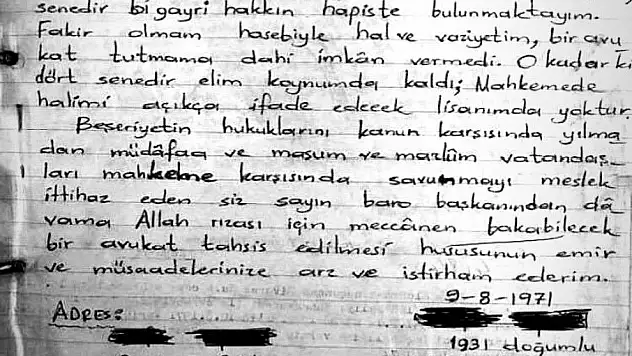 senedir bigayri hakkın hapiste bulunmaktayım.
Fakir olmam hasebiyle hal ve vaziyetim, bir avu
kat tutmama dahi imkân vermedi. O kadar ki
dört senedir elim koynumda kaldı; Mahkemede
halimi açıkça ifade edecek lisanımda yoktur.
Beşeriyetin hukuklarını kanun karşısında yılma
dan müdâfaa ve masum ve mazlûm vatandaş-
ları mahkeme karşısında savunmayı meslek
ittihaz eden siz sayın baro başkanından dâ
vama Allah rızası için meccânen bakabilecek
bir avukat tahsis edilmesi hususunun emir
ve müsaadelerinize arz ve istirham ederim.
9-8-1971
ADRES:
1931 doğumlu